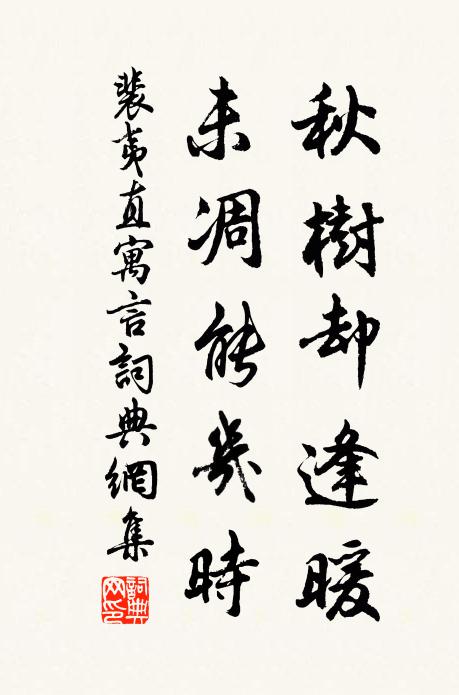 秋樹却逢暖
未凋能幾時
裴夷直寓言詞典網集
詞典網印